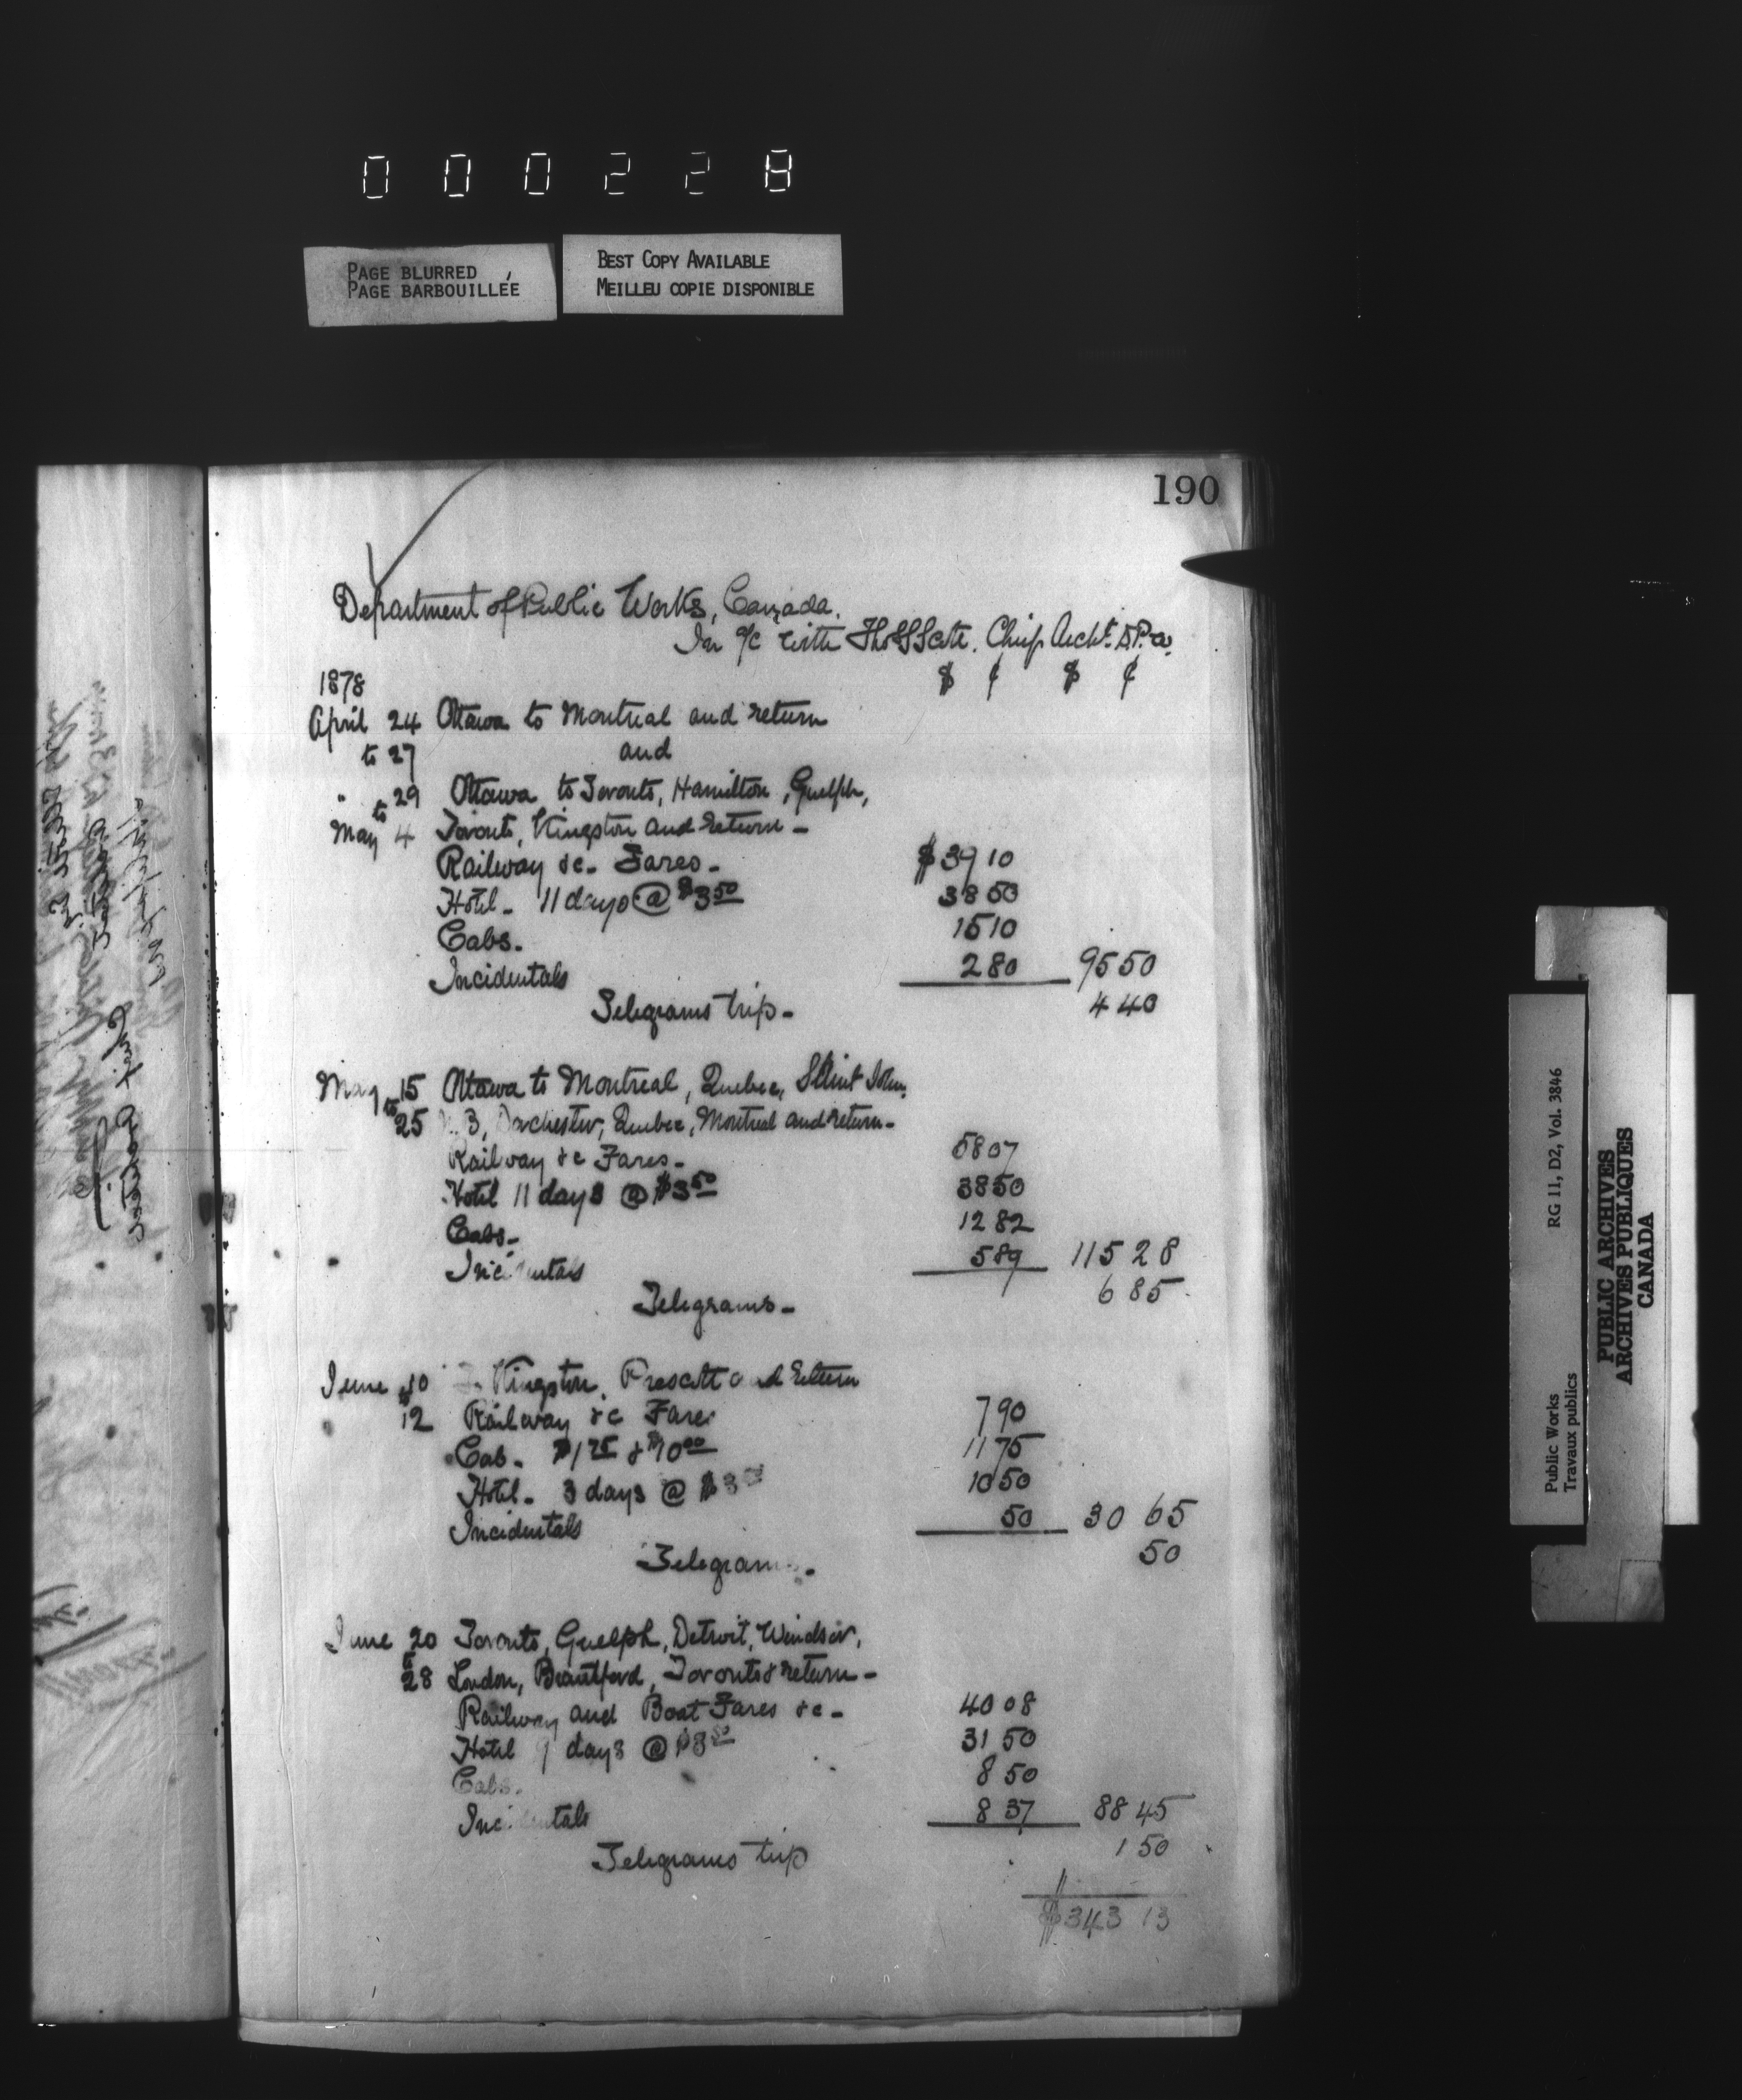 000228
PAGE BLURRED
PAGE BARBOUILLÉE
BEST COPY AVAILABLE
MEILLEU COPIE DISPONIBLE
190
Department of Public Works, Canada.
In a/c with Thos S Scott. Chief Archt. D.P.W.
$ ¢ $ ¢
1878
April 24 Ottawa to Montreal and return
to 27 and
" 29 Ottawa to Toronto, Hamilton, Guelph,
to
May 4 Toronto, Kingston and return -
Railway &c. Fares - $39 10
Hotel - 11 days @ $3 50 38 50
Cabs. 15 10
Incidentals 2 80 95 50
Telegrams trip - 4 40
May 15 Ottawa to Montreal, Quebec, Saint John,
to
25 N.B, Dorchester, Quebec, Montreal and return -
Railway &c Fares - 58 07
Hotel 11 days @ $3 50 38 50
Cabs - 12 82
Incidentals 5 89 115 28
Telegrams - 6 85
June 10 To Kingston, Prescott and return
to
12 Railway &c Fares 7 90
Cab. $1 75 & $10 00 11 75
Hotel - 3 days @ $3 10 50
Incidentals 50 30 65
Telegrams - 50
June 20 Toronto, Guelph, Detroit, Windsor,
to
28 London, Brantford, Toronto & return -
Railway and Boat Fares &c - 40 08
Hotel 9 days @ $3 50 31 50
Cabs. 8 50
Incidentals 8 37 88 45
Telegrams trip 1 50
$343 13
Public Works RG 11, D2, Vol. 3846
Travaux publics
PUBLIC ARCHIVES
ARCHIVES PUBLIQUES
CANADA